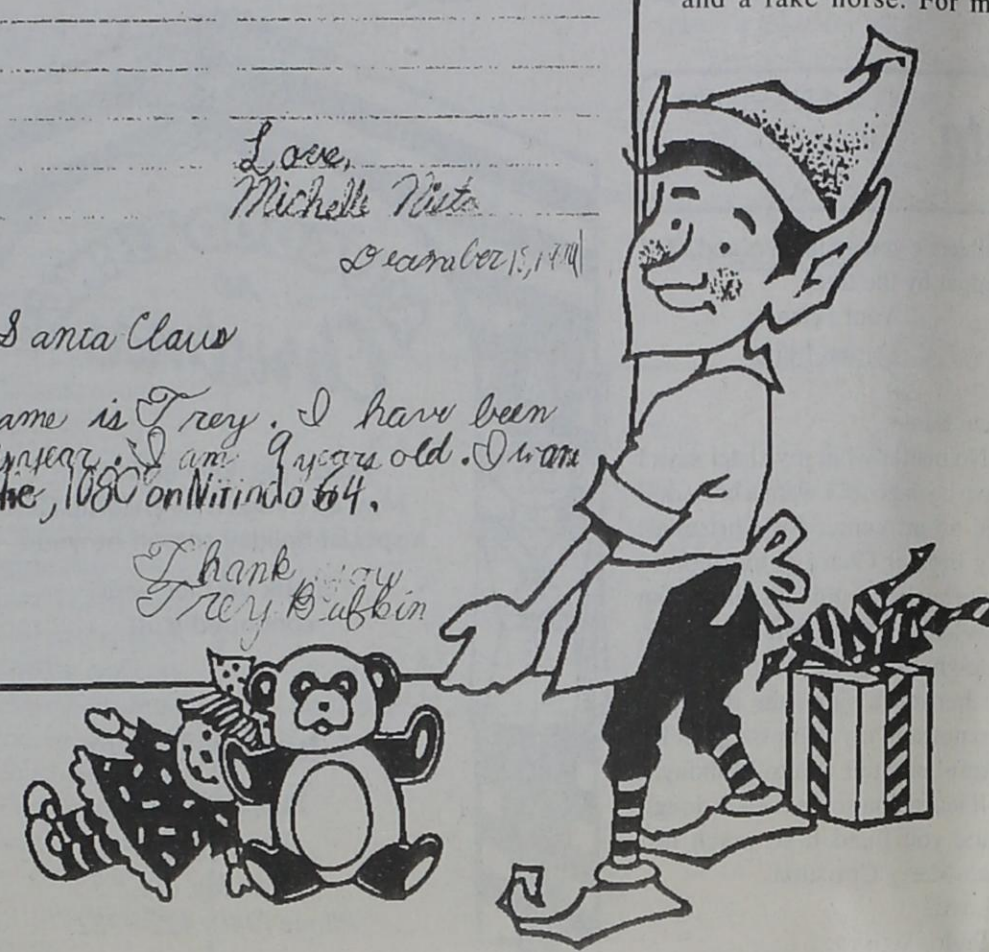 and a fake horse. For m
Love,
Michelle Vista
December
Santa Claus
ame is Trey. I have been
year. I am 9 years old. I wan
he, 1080° on Nitindo 64.
Thank you
Trey Bufkin